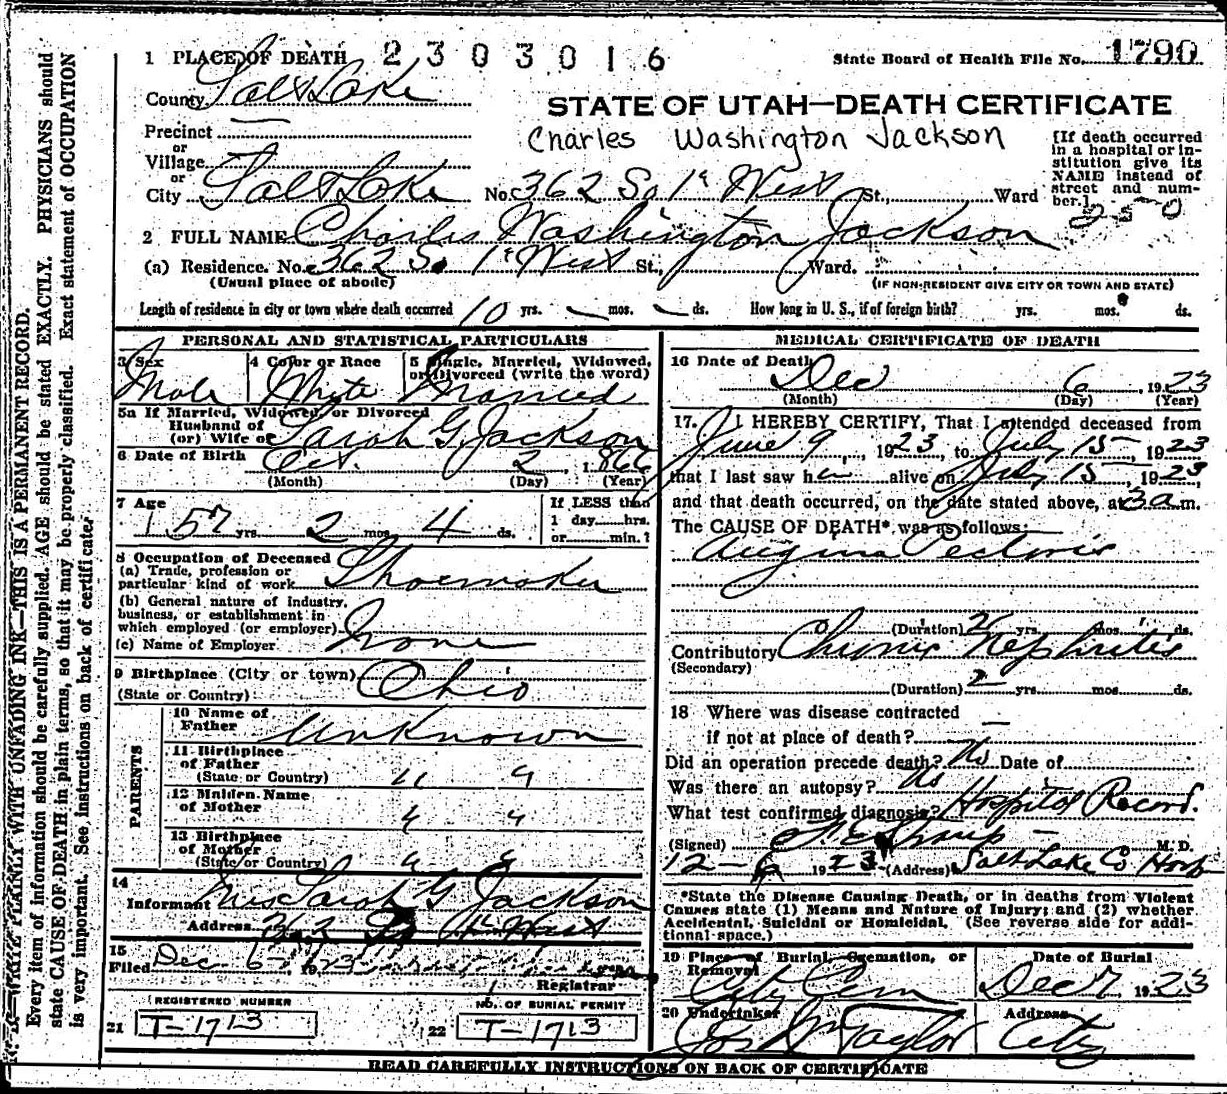 1 PLACE OF DEATH 2303016 State Board of Health File No. 1790
County Salt Lake
STATE OF UTAH—DEATH CERTIFICATE
Precinct
or
Village
or
City Salt Lake No. 362 So 1st West St., Ward
Charles Washington Jackson
[If death occurred
in a hospital or in-
stitution give its
NAME instead of
street and num-
ber.]
250
2 FULL NAME Charles Washington Jackson
(a) Residence. No. 362 So 1st West St., Ward.
(Usual place of abode) (IF NON-RESIDENT GIVE CITY OR TOWN AND STATE)
Length of residence in city or town where death occurred 10 yrs. — mos. — ds. How long in U. S., if of foreign birth? yrs. mos. ds.
PERSONAL AND STATISTICAL PARTICULARS
3 Sex 4 Color or Race 5 Single, Married, Widowed,
or Divorced (write the word)
Male White Married
5a If Married, Widowed, or Divorced
Husband of
(or) Wife of Sarah G Jackson
6 Date of Birth Oct. 2, 1866
(Month) (Day) (Year)
7 Age If LESS than
57 yrs. 2 mos. 4 ds. 1 day hrs.
or min.?
8 Occupation of Deceased
(a) Trade, profession or
particular kind of work Shoemaker
(b) General nature of industry,
business, or establishment in
which employed (or employer)
(c) Name of Employer None
9 Birthplace (City or town)
(State or Country) Ohio
PARENTS
10 Name of
Father Unknown
11 Birthplace
of Father
(State or Country) " "
12 Maiden Name
of Mother " "
13 Birthplace
of Mother
(State or Country) " "
14
Informant Mrs Sarah G Jackson
Address 362 So 1st West
15
Filed Dec 6 1923
Registrar
REGISTERED NUMBER NO. OF BURIAL PERMIT
21 T-1713 22 T-1713
MEDICAL CERTIFICATE OF DEATH
16 Date of Death
Dec 6 1923
(Month) (Day) (Year)
17. I HEREBY CERTIFY, That I attended deceased from
June 9, 1923, to July 15, 1923
that I last saw h im alive on July 15, 1923,
and that death occurred, on the date stated above, at 3 a m.
The CAUSE OF DEATH* was as follows:
Angina Pectoris
(Duration) 2 yrs. mos. ds.
Contributory Chronic Nephritis
(Secondary)
(Duration) 2 yrs. mos. ds.
18 Where was disease contracted
if not at place of death? —
Did an operation precede death? No Date of
Was there an autopsy? No
What test confirmed diagnosis? Hospital Record.
(Signed) M. D.
12-6 1923 (Address) Salt Lake Co Hosp
*State the Disease Causing Death, or in deaths from Violent
Causes state (1) Means and Nature of Injury; and (2) whether
Accidental, Suicidal or Homicidal. (See reverse side for addi-
tional space.)
19 Place of Burial, Cremation, or
Removal Date of Burial
City Cem Dec 7 1923
20 Undertaker Address
Jos Wm Taylor City
READ CAREFULLY INSTRUCTIONS ON BACK OF CERTIFICATE
N. B.—WRITE PLAINLY WITH UNFADING INK—THIS IS A PERMANENT RECORD.
Every item of information should be carefully supplied. AGE should be stated EXACTLY. PHYSICIANS should
state CAUSE OF DEATH in plain terms, so that it may be properly classified. Exact statement of OCCUPATION
is very important. See instructions on back of certificate.